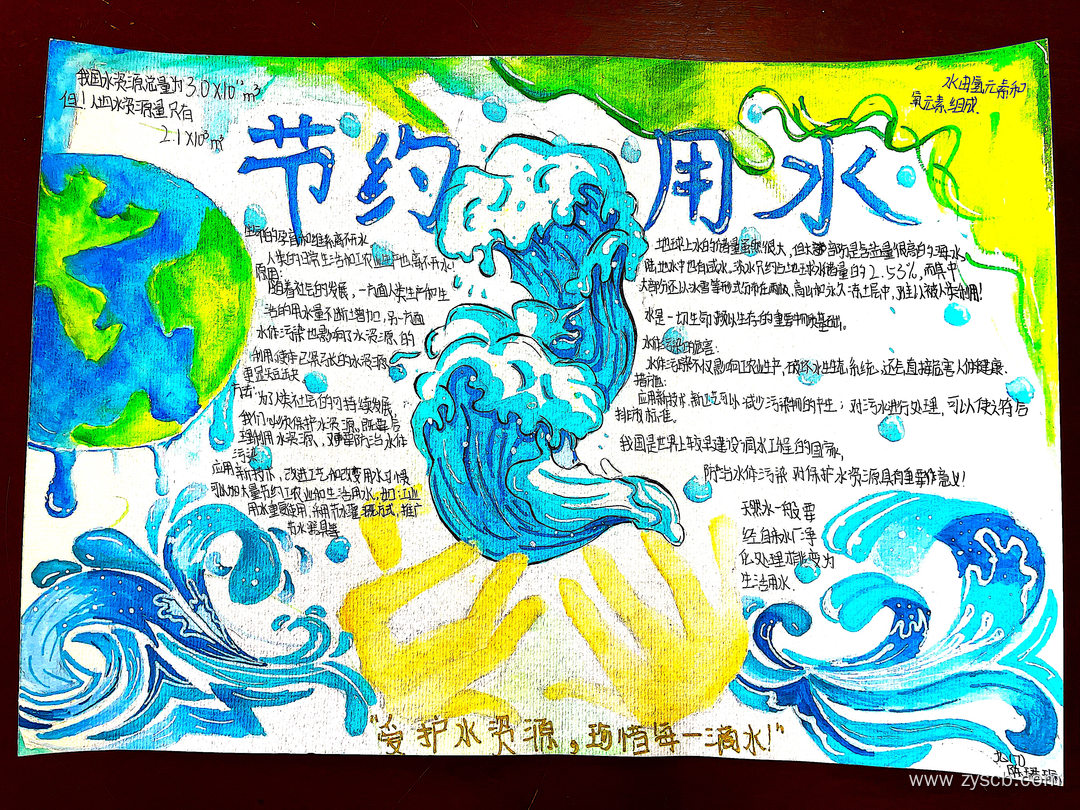 我国水资源总量为3.0×10¹² m³
但!人均水资源量只有
2.1×10³ m³
水由氢元素和
氧元素组成.
节约用水
生命的孕育和维系离不开水
人类的日常生活和工农业生产也离不开水!
原因:
随着社会的发展,一方面人类生产和生
活的用水量不断增加,另一方面
水体污染也影响了水资源的
利用,使本已紧张的水资源
更显短缺
方法:为了人类社会的可持续发展
我们必须保护水资源、既要合
理利用水资源、又要防治水体
污染
应用新技术、改进工艺和改变用水习惯
可以大量节约工农业和生活用水,如:工业
用水重复使用,采用节水灌溉方式,推广
节水器具等
地球上水的储量虽然很大,但大部分是含盐量很高的海水,
陆地水中也有咸水,淡水只约占地球水储量的2.53%,而其中
大部分还以冰雪等形式分布在两极、高山和永久冻土层中,难以被人类利用!
水是一切生命赖以生存的重要物质基础。
水体污染的危害:
水体污染不仅影响工农业生产,破坏水生生态系统,还会直接危害人体健康.
措施:
应用新技术、新工艺可以减少污染物的产生;对污水进行处理,可以使之符合
排放标准。
我国是世界上较早建设调水工程的国家,
防治水体污染对保护水资源具有重要作意义!
天然水一般要
经自来水厂净
化处理才能变为
生活用水.
"爱护水资源,珍惜每一滴水!"
www.zyscb.com